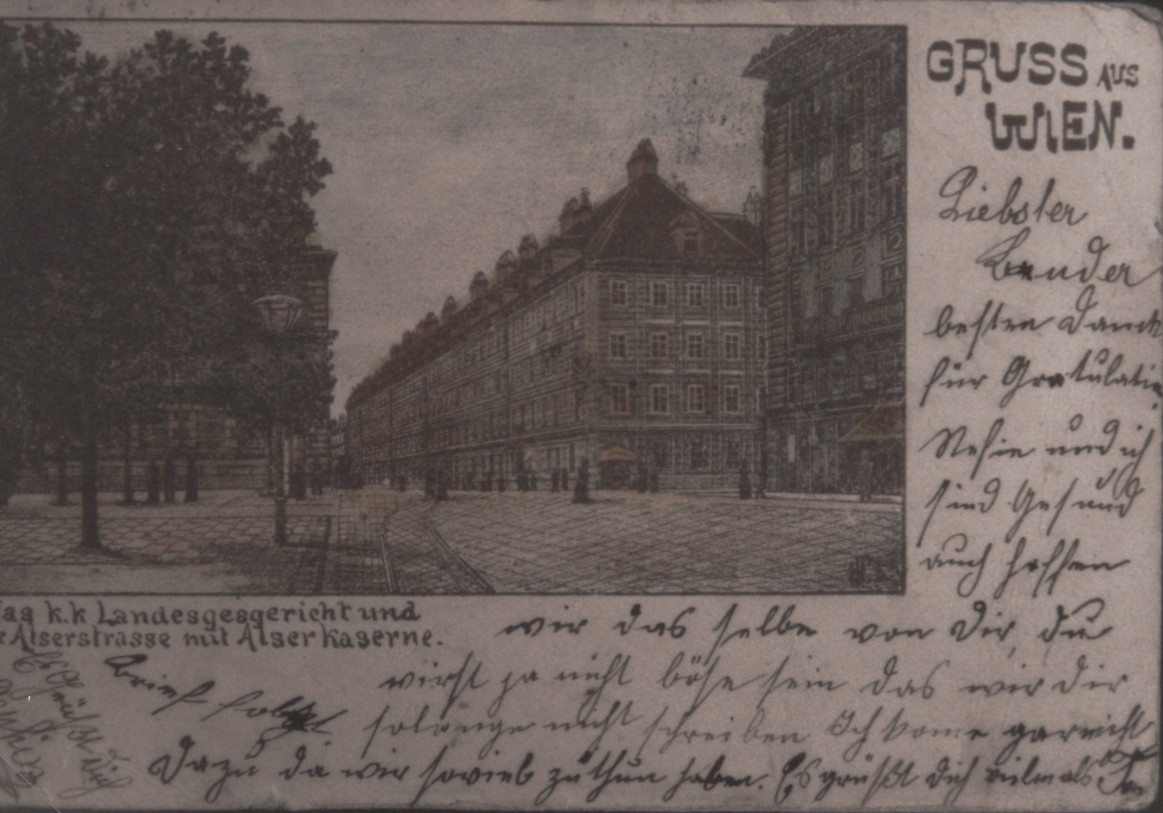 GRUSS AUS
WIEN.
Liebster
Bruder
besten Dank
für Gratulatio
und ich
sind Gesund
auch hoffen
wir das selbe von Dir, du
wirst ja nicht böse sein das wir dir
solange nicht schreiben Ich kome garnicht
Dazu da wir sovieb zu thun haben. Es grüßt dich vielmals
das k.k Landesgesgericht und
r Alserstrasse mit Alser Kaserne.
Brief folgt
Es Grüßt Dich